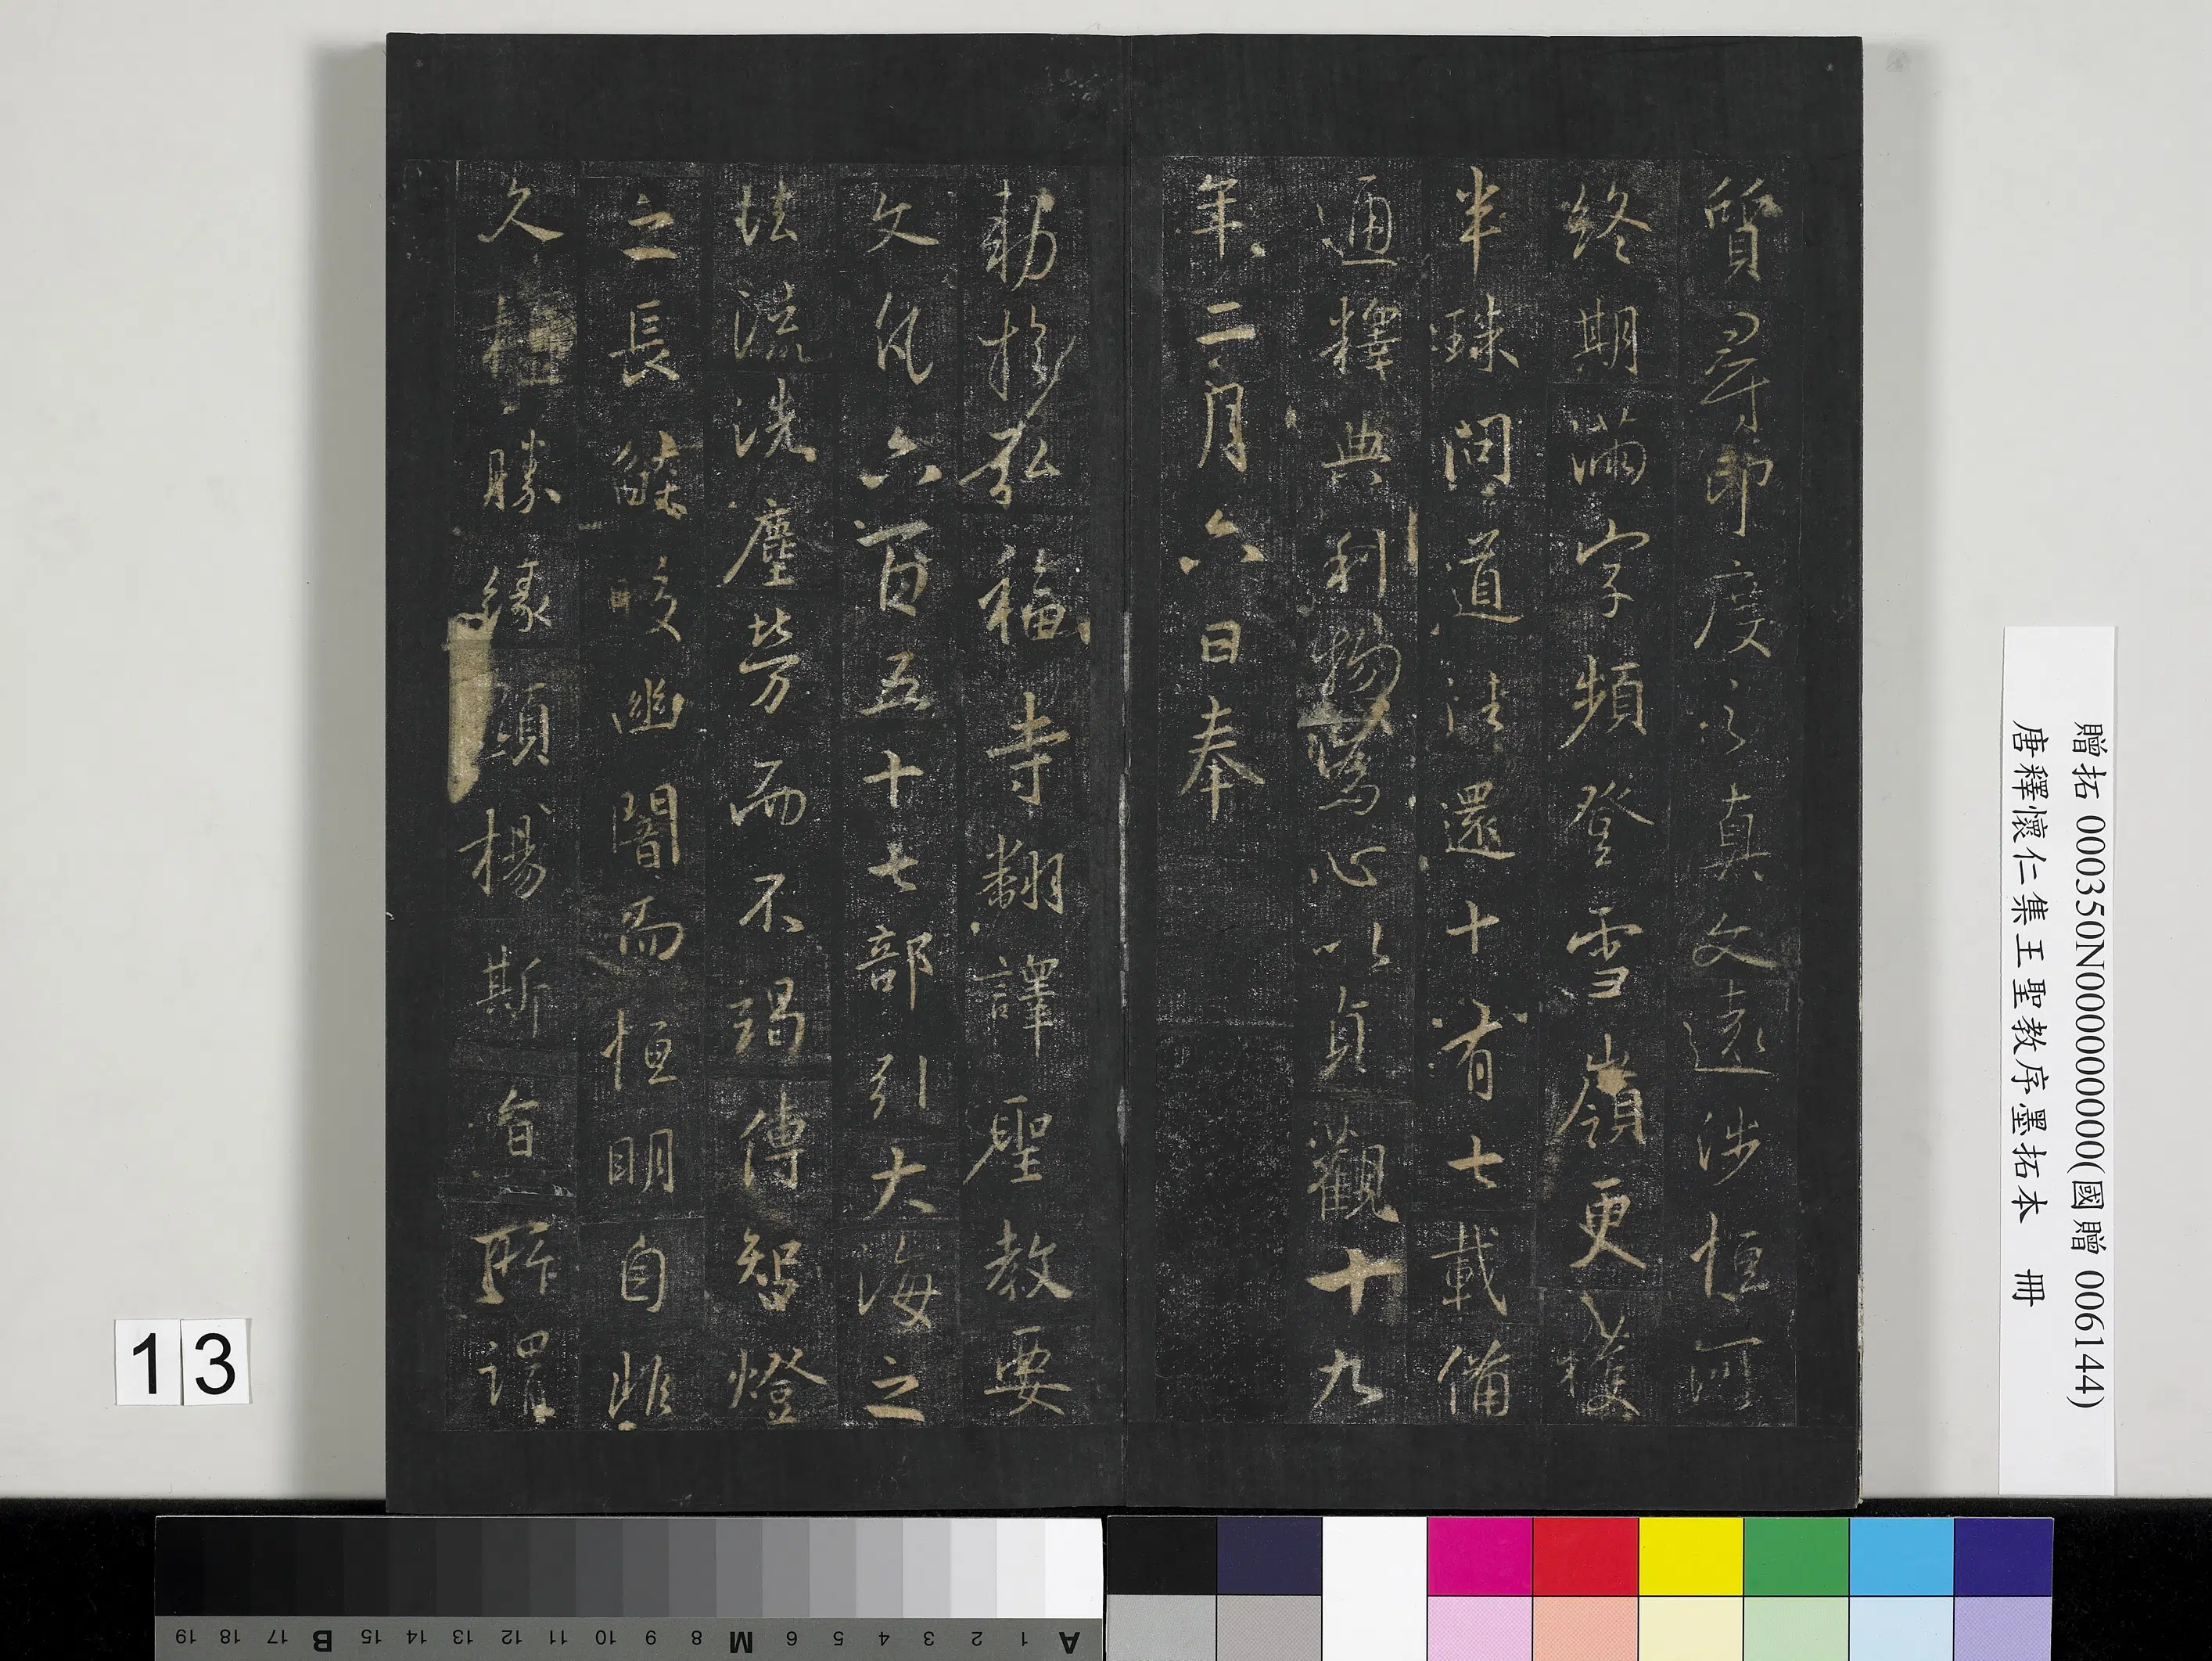 質尋印度之真文遠涉恒河
終期滿字頻登雪嶺更獲
半珠問道法還十有七載備
通釋典利物為心以貞觀十九
年二月六日奉
勅於弘福寺翻譯聖教要
文凡六百五十七部引大海之
法流洗塵勞而不竭傳智燈
之長焰皎幽闇而恒明自非
久植勝緣何以顯揚斯旨所謂
贈拓 000350N000000000(國贈 006144)
唐釋懷仁集王聖教序墨拓本 冊
13
A 1 2 3 4 5 6 M 8 9 10 11 12 13 14 15 B 17 18 19